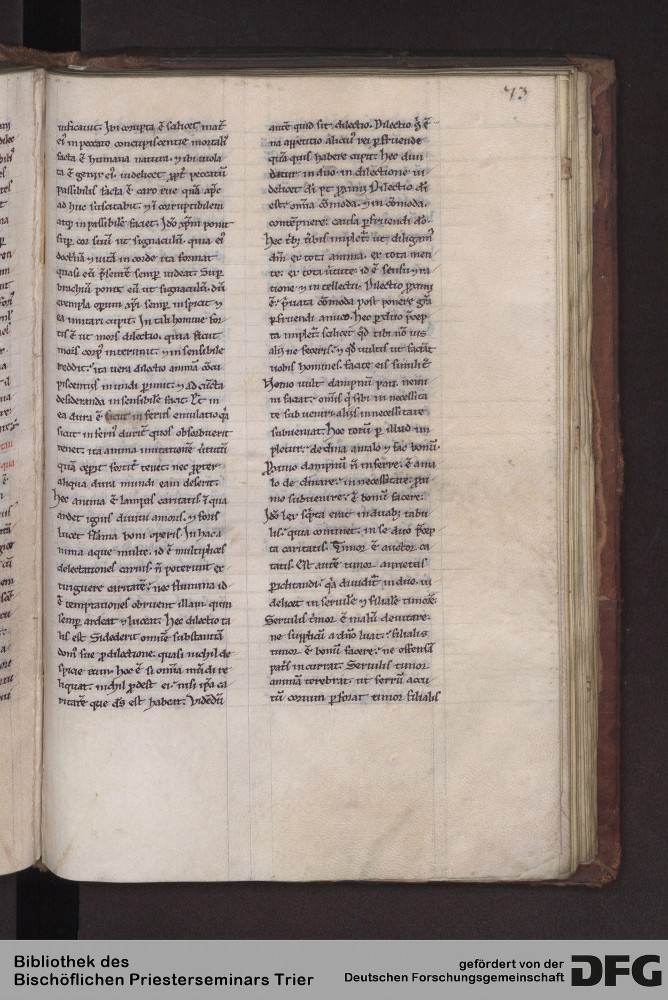 73
uificauit. Ibi corrupta ē scilicet mat̄
ei᷒ in peccato concupiscentie mortalis
facta ē humana natura. ⁊ ibi uiola
ta ē genitⁱx ei᷒. uidelicet ꝓpt̄ peccatū
passibilis facta ē caro eue quā xp̄c
ad huc suscitabit. ⁊ ī corruptibilem
atq; inpassibile faciet. Ido xp̄m ponit
sup̄ cor suū ut signaculū. quia ei᷒
doctnā ⁊ uitā in corde ita format
quasi eū p̄sentē semp̄ uideat. Sup̄
brachiū ponit eū ut signaculū. dū
exempla operum xp̄i semp̄ inspicit ⁊
ea imitari cupit. In tali homine for
tis ē ut mors dilectio. quia sicut
mors corp᷒ interimit. ⁊ insensibile
reddit. ita uera dilectio animā cōcu
piscentiis mundi ꝑimit. ⁊ ad cūcta
desideranda insensibile facit. Et in
ea dura ē sicut in fern᷒ emulatio q̄a
sicut infern᷒ duritē quos obsorbuerit
tenet. ita anima imitationē uirtutū
quā cepit fortit̄ tenet. nec ꝓpter
aliqua dura mundi eam deserit.
Hec anima ē lampas caritatis ī qua
ardet ignis diuini amoris. ⁊ foris
lucet flāma boni operis. In hac a
nima aque multe. id ē multiplices
delectationes carnis. n̄ poterunt ex
tinguere caritatē. nec flumina id
ē temptationes obruent illam. quin
semp̄ ardeat ⁊ luceat. Hec dilectio ta
lis est. Si dederit omnē substantiā
dom᷒ sue ꝓ dilectione. quasi nichil de
spiciet eum. hoc ē si omnia mūdi re
liquat. nichil ꝓdest ei. nisi ip̄a ca
ritatē que d̄s est habeat. Videndū
autē quid sit dilectio. Dilectio q̄ ē
na appetitio alicui᷒ rei ꝑfruende
quā quis habere cupit. Hec diui
datur in duo. in dilectione ui
delicet d̄i et ꝓximi. Dilectio d̄i
est. om̄a cōmoda. ⁊ incōmoda.
contēpnere. causa ꝑfruendi d̄o.
Hec trib᷒ ūbis implet̄. ut diligam᷒
d̄m ex tota anima. ex tota men
te. ex tota uirtute. id ē sensu ⁊ ra
tione ⁊ intellectu. Dilectio ꝓximi
ē. ꝑuata cōmoda post ponere gr̄a
ꝑfruendi amico. Hec ꝑ duo p̄cep
ta implet̄. scilicet q̄d tibi nō uis
aliis ne feceris. ⁊ q̄d uultis ut faciāt
uobis homines. facite eis similit̄
Homo uult dampnū pati. nemi
ni faciat. omis q̄ sibi in necessita
te subueniri. aliis in necessitate
subueniat. Hoc totū ꝑ illud im
pletur. declina a malo ⁊ fac bonū.
Proximo dampnū n̄ inferre. ē a ma
lo declinare. in necessitate ꝓxi
mo subuenire. ē bonū facere.
Ido lex sc̄pta erat in duab; tabu
lis. quia continet in se duo p̄cep
ta caritatis. Timor ē auctor ca
ritatis. Est autē timor anxietas
periclitandi. q̄ diuidit̄ in duo. ui
delicet in seruile ⁊ filiale timorē.
Seruilis timor ē malū deuitare.
ne supliciū a dn̄o luat. filialis
timor ē bonū facere. ne offensā
pat̄s incurrat. Seruilis timor
animā terebrat. ut ferrū accu
tū corium ꝑforat timor filialis
Bibliothek des
Bischöflichen Priesterseminars Trier
gefördert von der
Deutschen Forschungsgemeinschaft
DFG